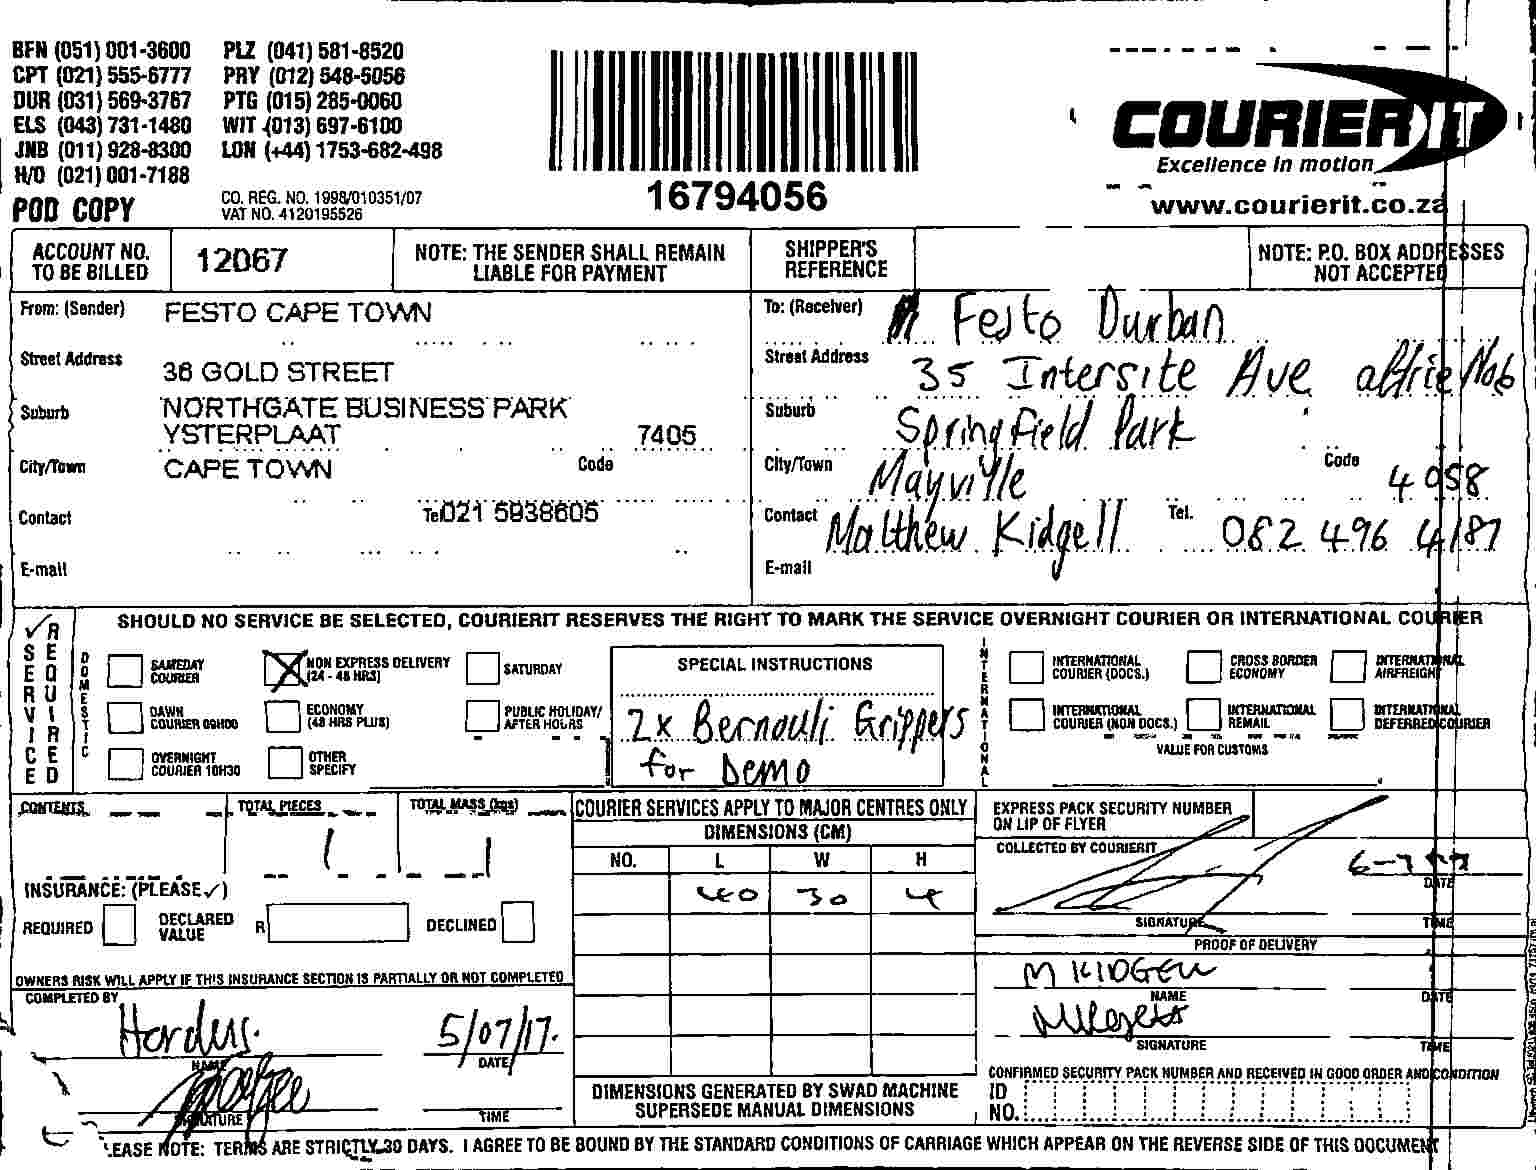 BFN (051) 001-3600 PLZ (041) 581-8520
CPT (021) 555-6777 PRY (012) 548-5056
DUR (031) 569-3767 PTG (015) 285-0060
ELS (043) 731-1480 WIT (013) 697-6100
JNB (011) 928-8300 LON (+44) 1753-682-498
H/O (021) 001-7188
POD COPY
CO. REG. NO. 1998/010351/07
VAT NO. 4120195526
16794056
COURIER IT
Excellence in motion
www.courierit.co.za
ACCOUNT NO.
TO BE BILLED
12067
NOTE: THE SENDER SHALL REMAIN
LIABLE FOR PAYMENT
SHIPPER'S
REFERENCE
NOTE: P.O. BOX ADDRESSES
NOT ACCEPTED
From: (Sender) FESTO CAPE TOWN
Street Address 36 GOLD STREET
Suburb NORTHGATE BUSINESS PARK
YSTERPLAAT 7405
City/Town CAPE TOWN Code
Contact Tel 021 5938605
E-mail
To: (Receiver) Festo Durban
Street Address 35 Intersite Ave
Suburb Springfield Park
City/Town Mayville Code 4058
Contact Matthew Kidgell Tel. 082 496 4187
E-mail
SHOULD NO SERVICE BE SELECTED, COURIERIT RESERVES THE RIGHT TO MARK THE SERVICE OVERNIGHT COURIER OR INTERNATIONAL COURIER
SERVICE
REQUIRED
DOMESTIC
SAMEDAY
COURIER
NON EXPRESS DELIVERY
(24 - 48 HRS)
SATURDAY
DAWN
COURIER 09H00
ECONOMY
(48 HRS PLUS)
PUBLIC HOLIDAY/
AFTER HOURS
OVERNIGHT
COURIER 10H30
OTHER
SPECIFY
SPECIAL INSTRUCTIONS
2x Bernouli Grippers
for Demo
INTERNATIONAL
INTERNATIONAL
COURIER (DOCS.)
CROSS BORDER
ECONOMY
INTERNATIONAL
AIRFREIGHT
INTERNATIONAL
COURIER (NON DOCS.)
INTERNATIONAL
REMAIL
INTERNATIONAL
DEFERRED COURIER
VALUE FOR CUSTOMS
CONTENTS TOTAL PIECES TOTAL MASS (kgs)
1 1
INSURANCE: (PLEASE ✓)
REQUIRED DECLARED
VALUE R DECLINED
OWNERS RISK WILL APPLY IF THIS INSURANCE SECTION IS PARTIALLY OR NOT COMPLETED
COMPLETED BY
Hardus. 5/07/17.
NAME DATE
SIGNATURE TIME
COURIER SERVICES APPLY TO MAJOR CENTRES ONLY
DIMENSIONS (CM)
NO. L W H
40 30 4
DIMENSIONS GENERATED BY SWAD MACHINE
SUPERSEDE MANUAL DIMENSIONS
EXPRESS PACK SECURITY NUMBER
ON LIP OF FLYER
COLLECTED BY COURIERIT
DATE
SIGNATURE TIME
PROOF OF DELIVERY
M KIDGELL
NAME DATE
SIGNATURE TIME
CONFIRMED SECURITY PACK NUMBER AND RECEIVED IN GOOD ORDER AND CONDITION
ID
NO.
LEASE NOTE: TERMS ARE STRICTLY 30 DAYS. I AGREE TO BE BOUND BY THE STANDARD CONDITIONS OF CARRIAGE WHICH APPEAR ON THE REVERSE SIDE OF THIS DOCUMENT